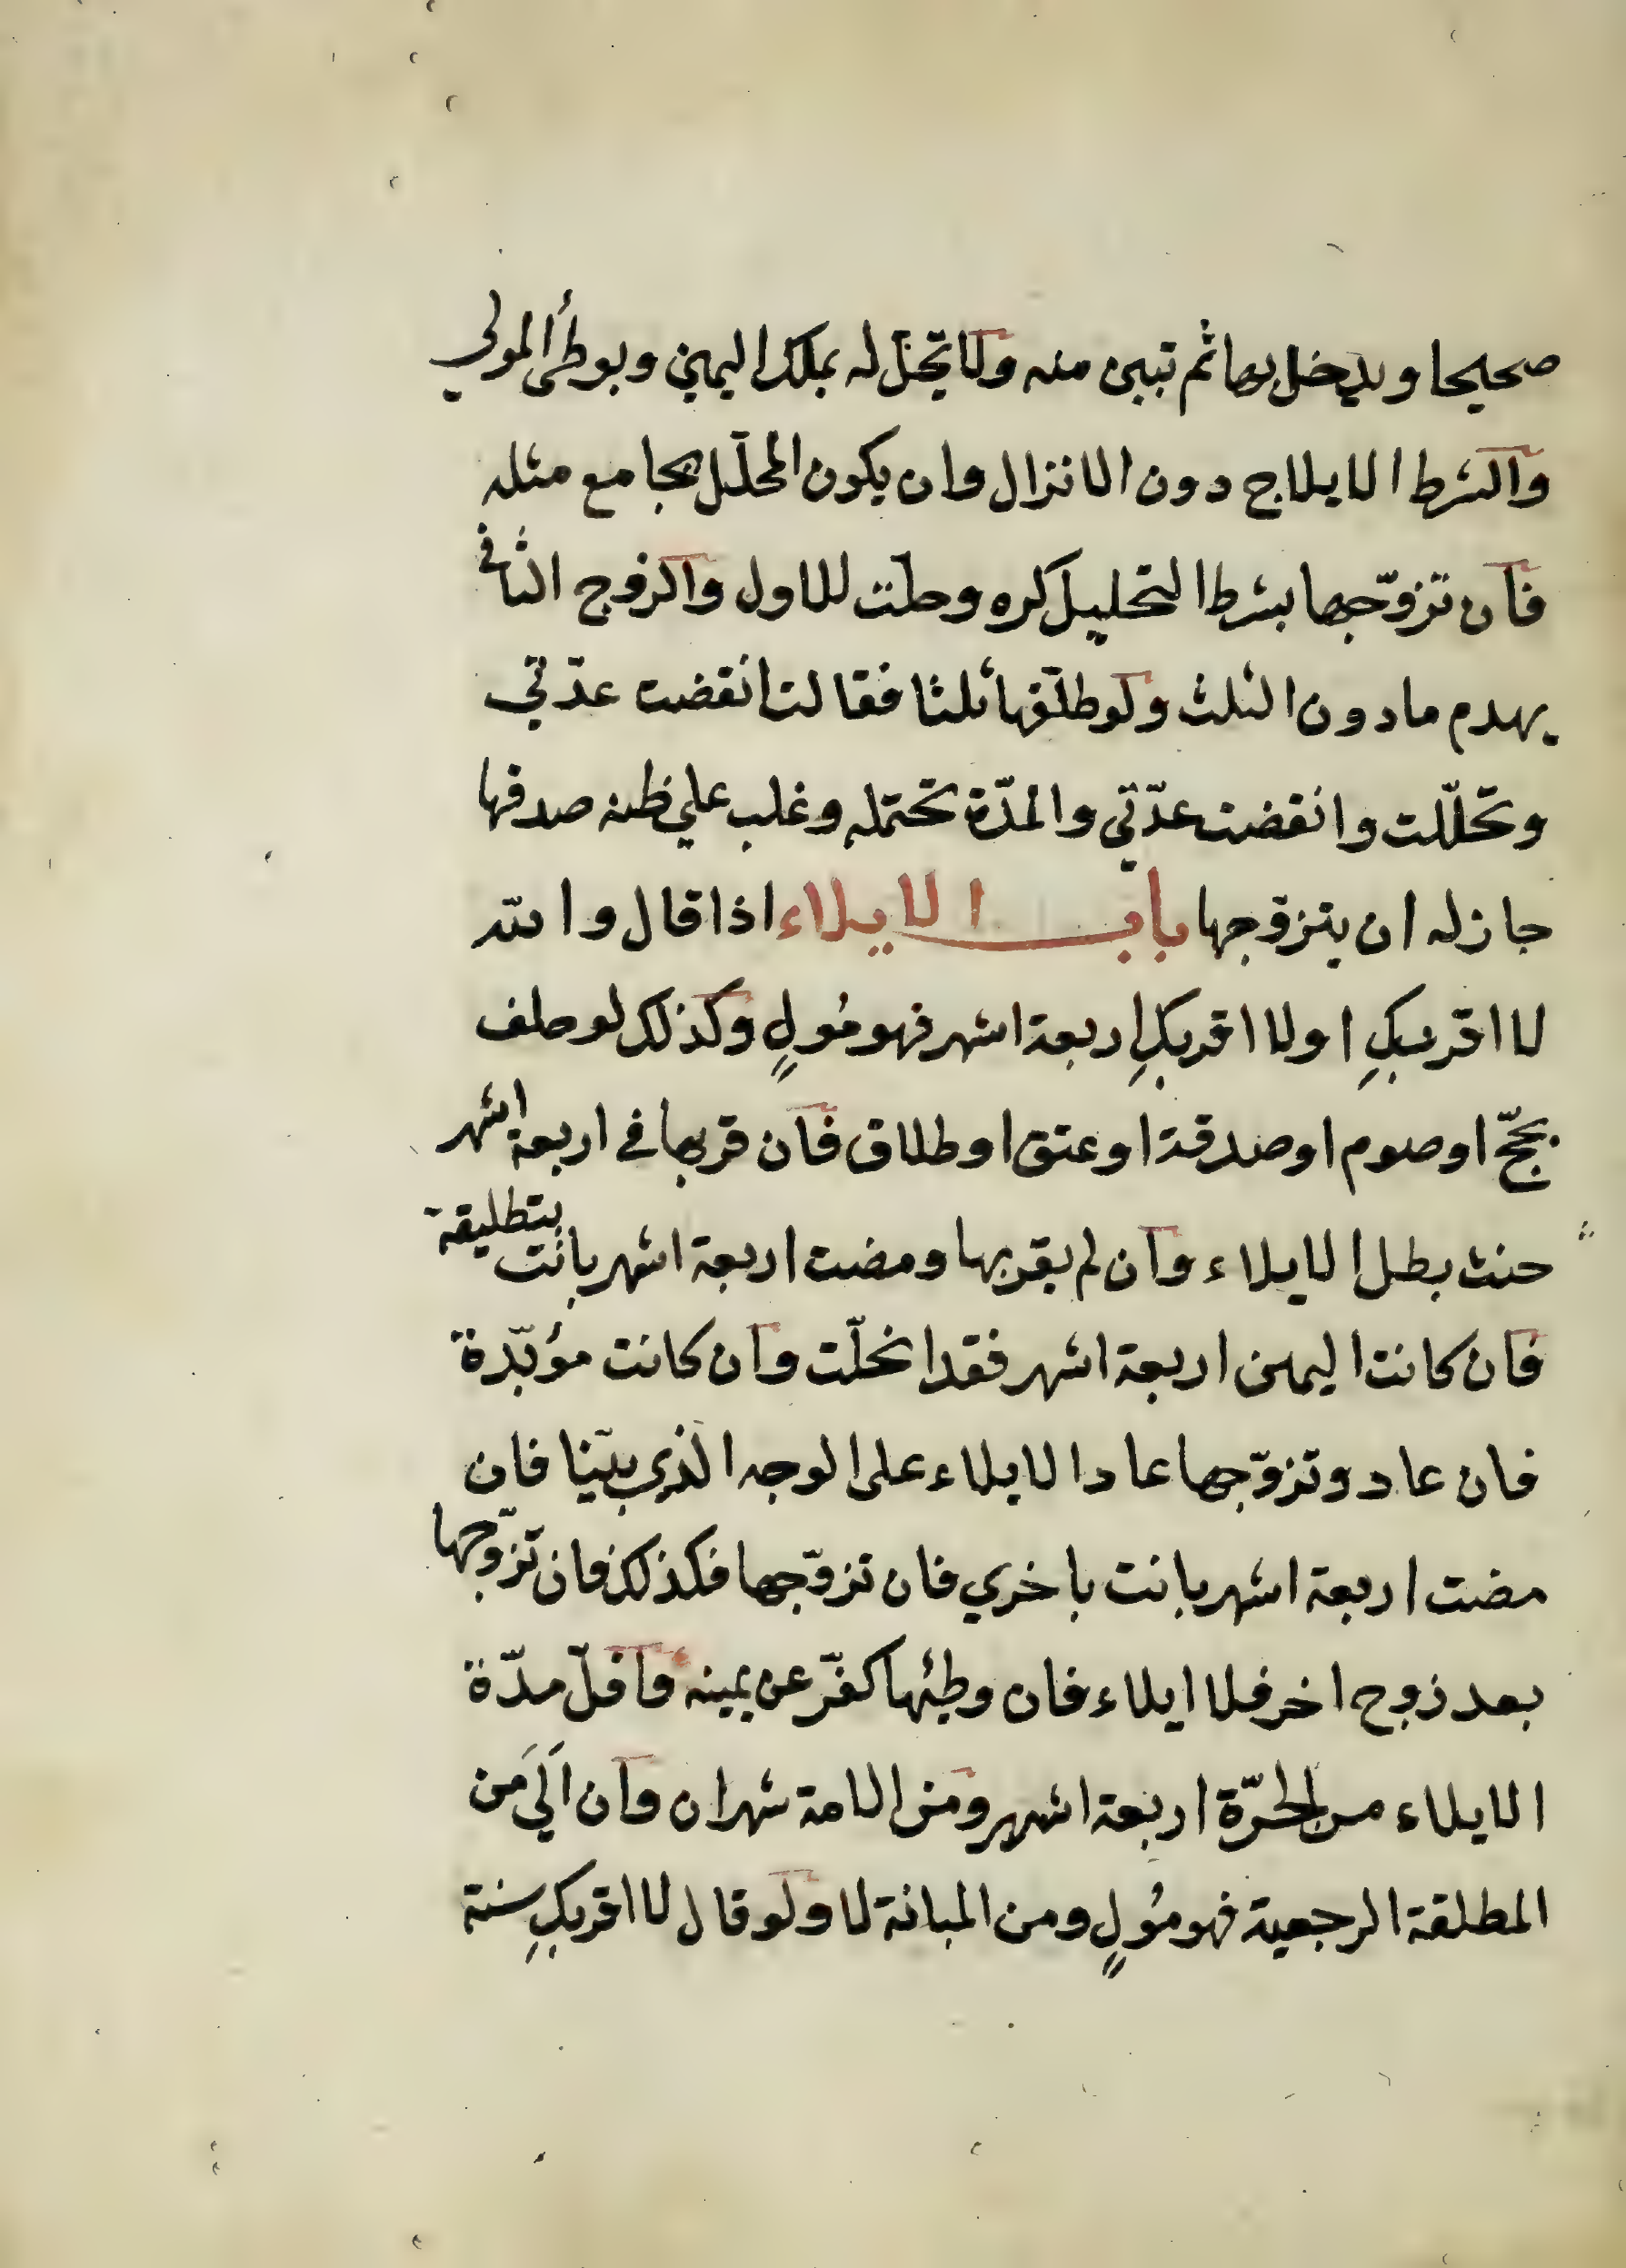 صحيحا ويدخل بها ثم تبين منه ولا تحلّ له بملك اليمين وبوطئ المولي
والشرط الايلاج دون الانزال وان يكون المحلّل يجامع مثله
فان تزوّجها بشرط التحليل كره وحلّت للاول والزوج الثاني
يهدم مادون الثلث ولو طلّقها ثلثا فقالت انقضت عدّتي
وتحلّلت وانقضت عدّتي والمدّة تحتمله وغلب علي ظنه صدقها
جاز له ان يتزوّجها باب الايلاء اذا قال والله
لا اقربكِ او لا اقربكِ اربعة اشهر فهو مُولٍ وكذلك لو حلف
بحجّ او صوم او صدقة او عتق او طلاق فان قربها في اربعة اشهر
حنث بطل الايلاء وان لم يقربها ومضت اربعة اشهر بانت بتطليقة
فان كانت اليمين اربعة اشهر فقد انحلّت وان كانت مؤبّدة
فان عاد وتزوّجها عاد الايلاء على الوجه الذي بيّنا فان
مضت اربعة اشهر بانت باخري فان تزوّجها فكذلك فان تزوّجها
بعد زوج اخر فلا ايلاء فان وطئها كفّر عن يمينه واقلّ مدّة
الايلاء من الحرّة اربعة اشهر ومن الامة شهران وان اٰلَي مَن
المطلقة الرجعية فهو مُولٍ ومن المبانة لا ولو قال لا اقربكِ سنة